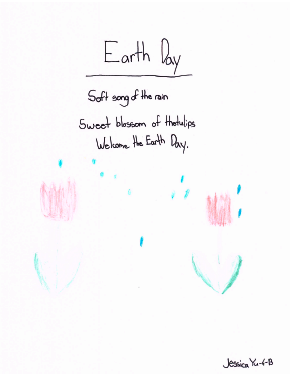 Earth Day
Soft song of the rain
Sweet blossom of thetulips
Welcome the Earth Day.
Jessica Yu-6-B